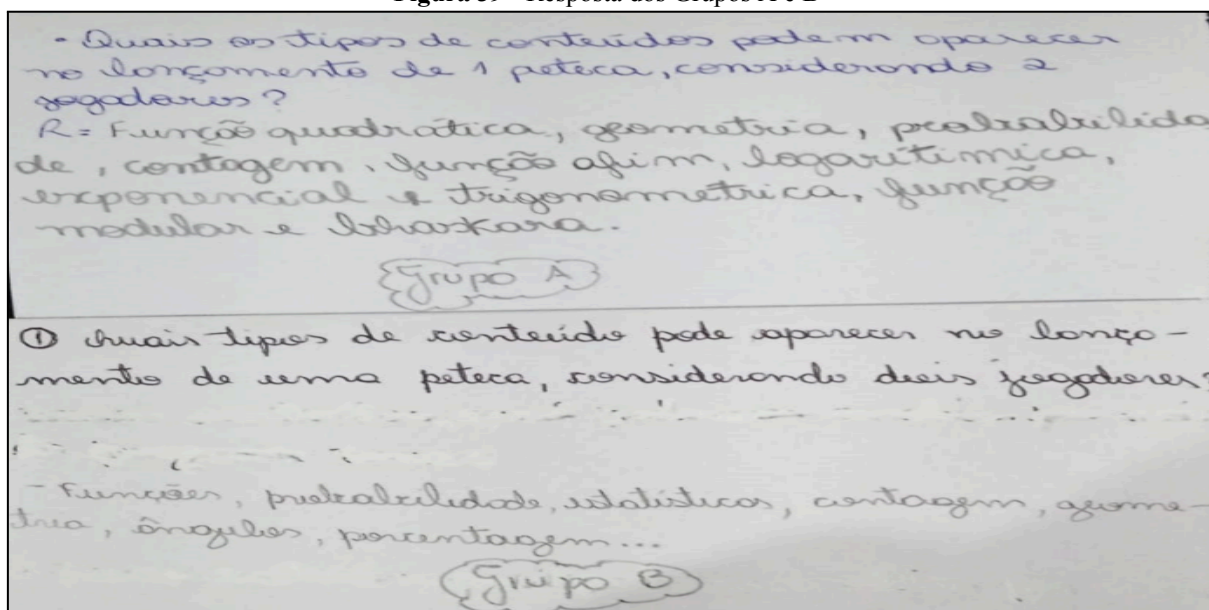 - Quais os tipos de conteúdos podem aparecer
no lançamento de 1 peteca, considerando 2
jogadores?
R= Função quadrática, geometria, probabilida
de, contagem, função afim, logaritimica,
exponencial e trigonometrica, função
modular e bhaskara.
Grupo A
① Quais tipos de conteúdo pode aparecer no lança-
mento de uma peteca, considerando dois jogadores?
- Funções, probabilidade, estatísticas, contagem, geome-
tria, ângulos, porcentagem...
Grupo B